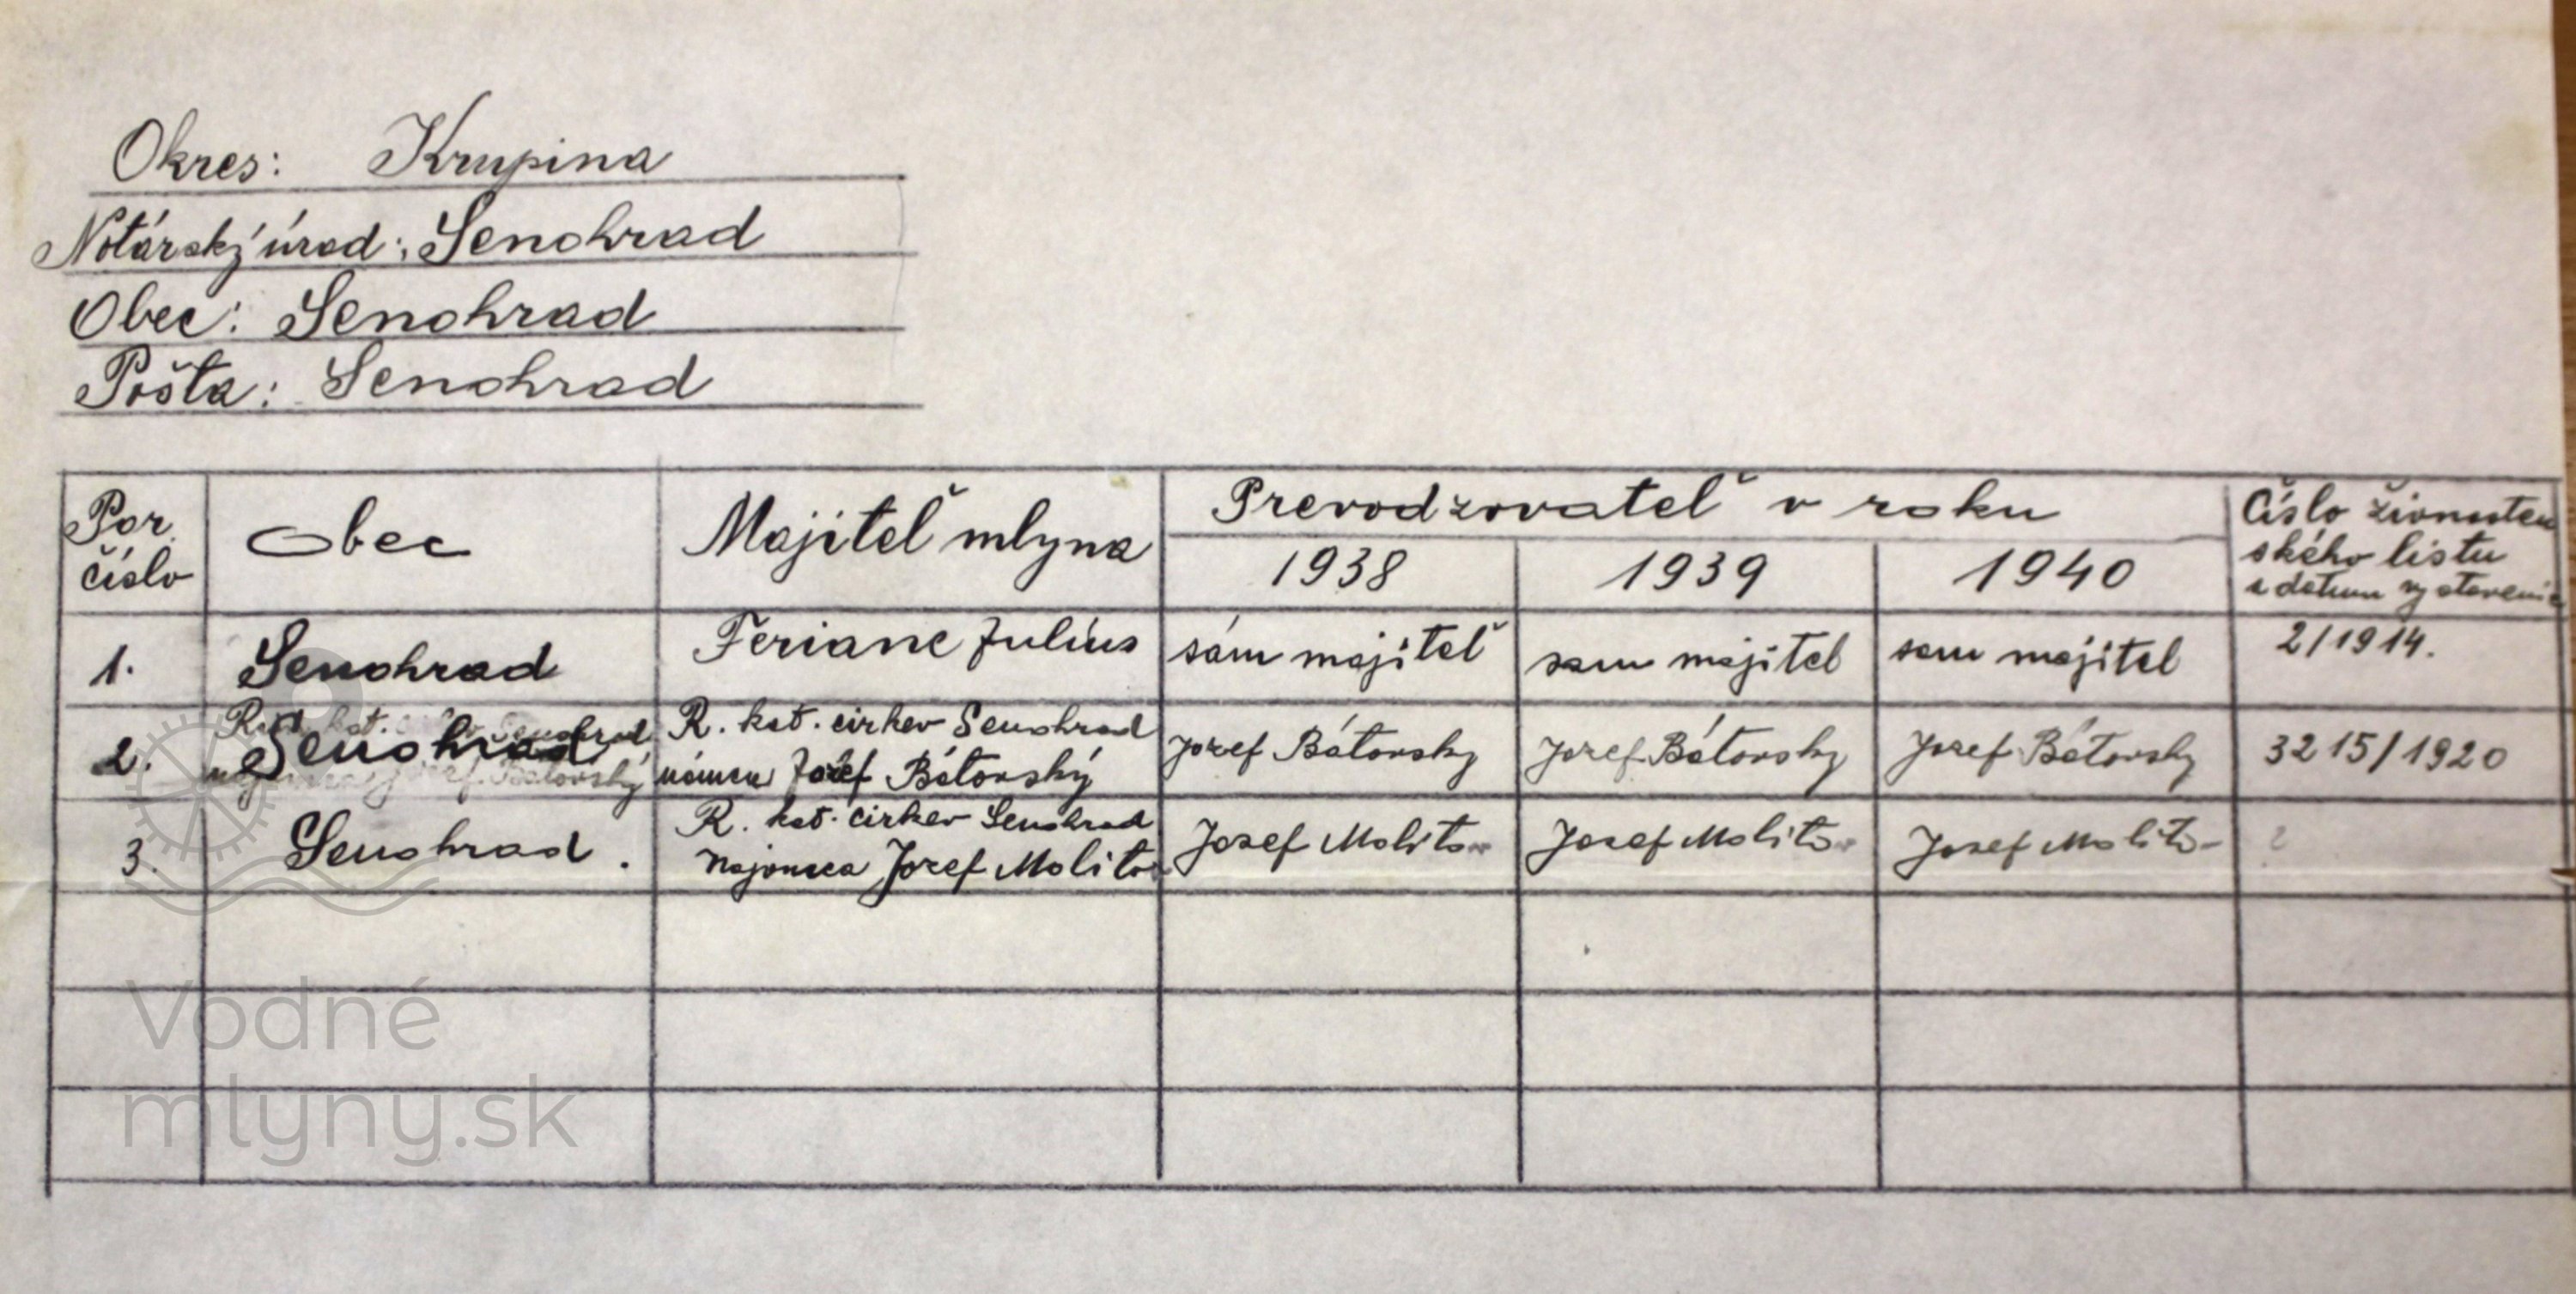 Okres: Krupina
Notárský úrad: Senohrad
Obec: Senohrad
Pošta: Senohrad
Por. číslo Obec Majiteľ mlyna Prevodzovateľ v roku Číslo živnosten
ského listu
a dátum vystavenia
1938 1939 1940
1. Senohrad Feriane Július sám majiteľ sam majitel sam majitel 2/1914.
2. Senohrad R. kat. cirkev Senohrad
Jozef Bátorský Jozef Bátorsky Jozef Bátorsky Jozef Bátorsky 3215/1920
3. Senohrad. R. kat. cirkev Senohrad
Najomca Jozef Molitor Josef Molitor Josef Molitor Josef Molitor ?
Vodné
mlyny.sk